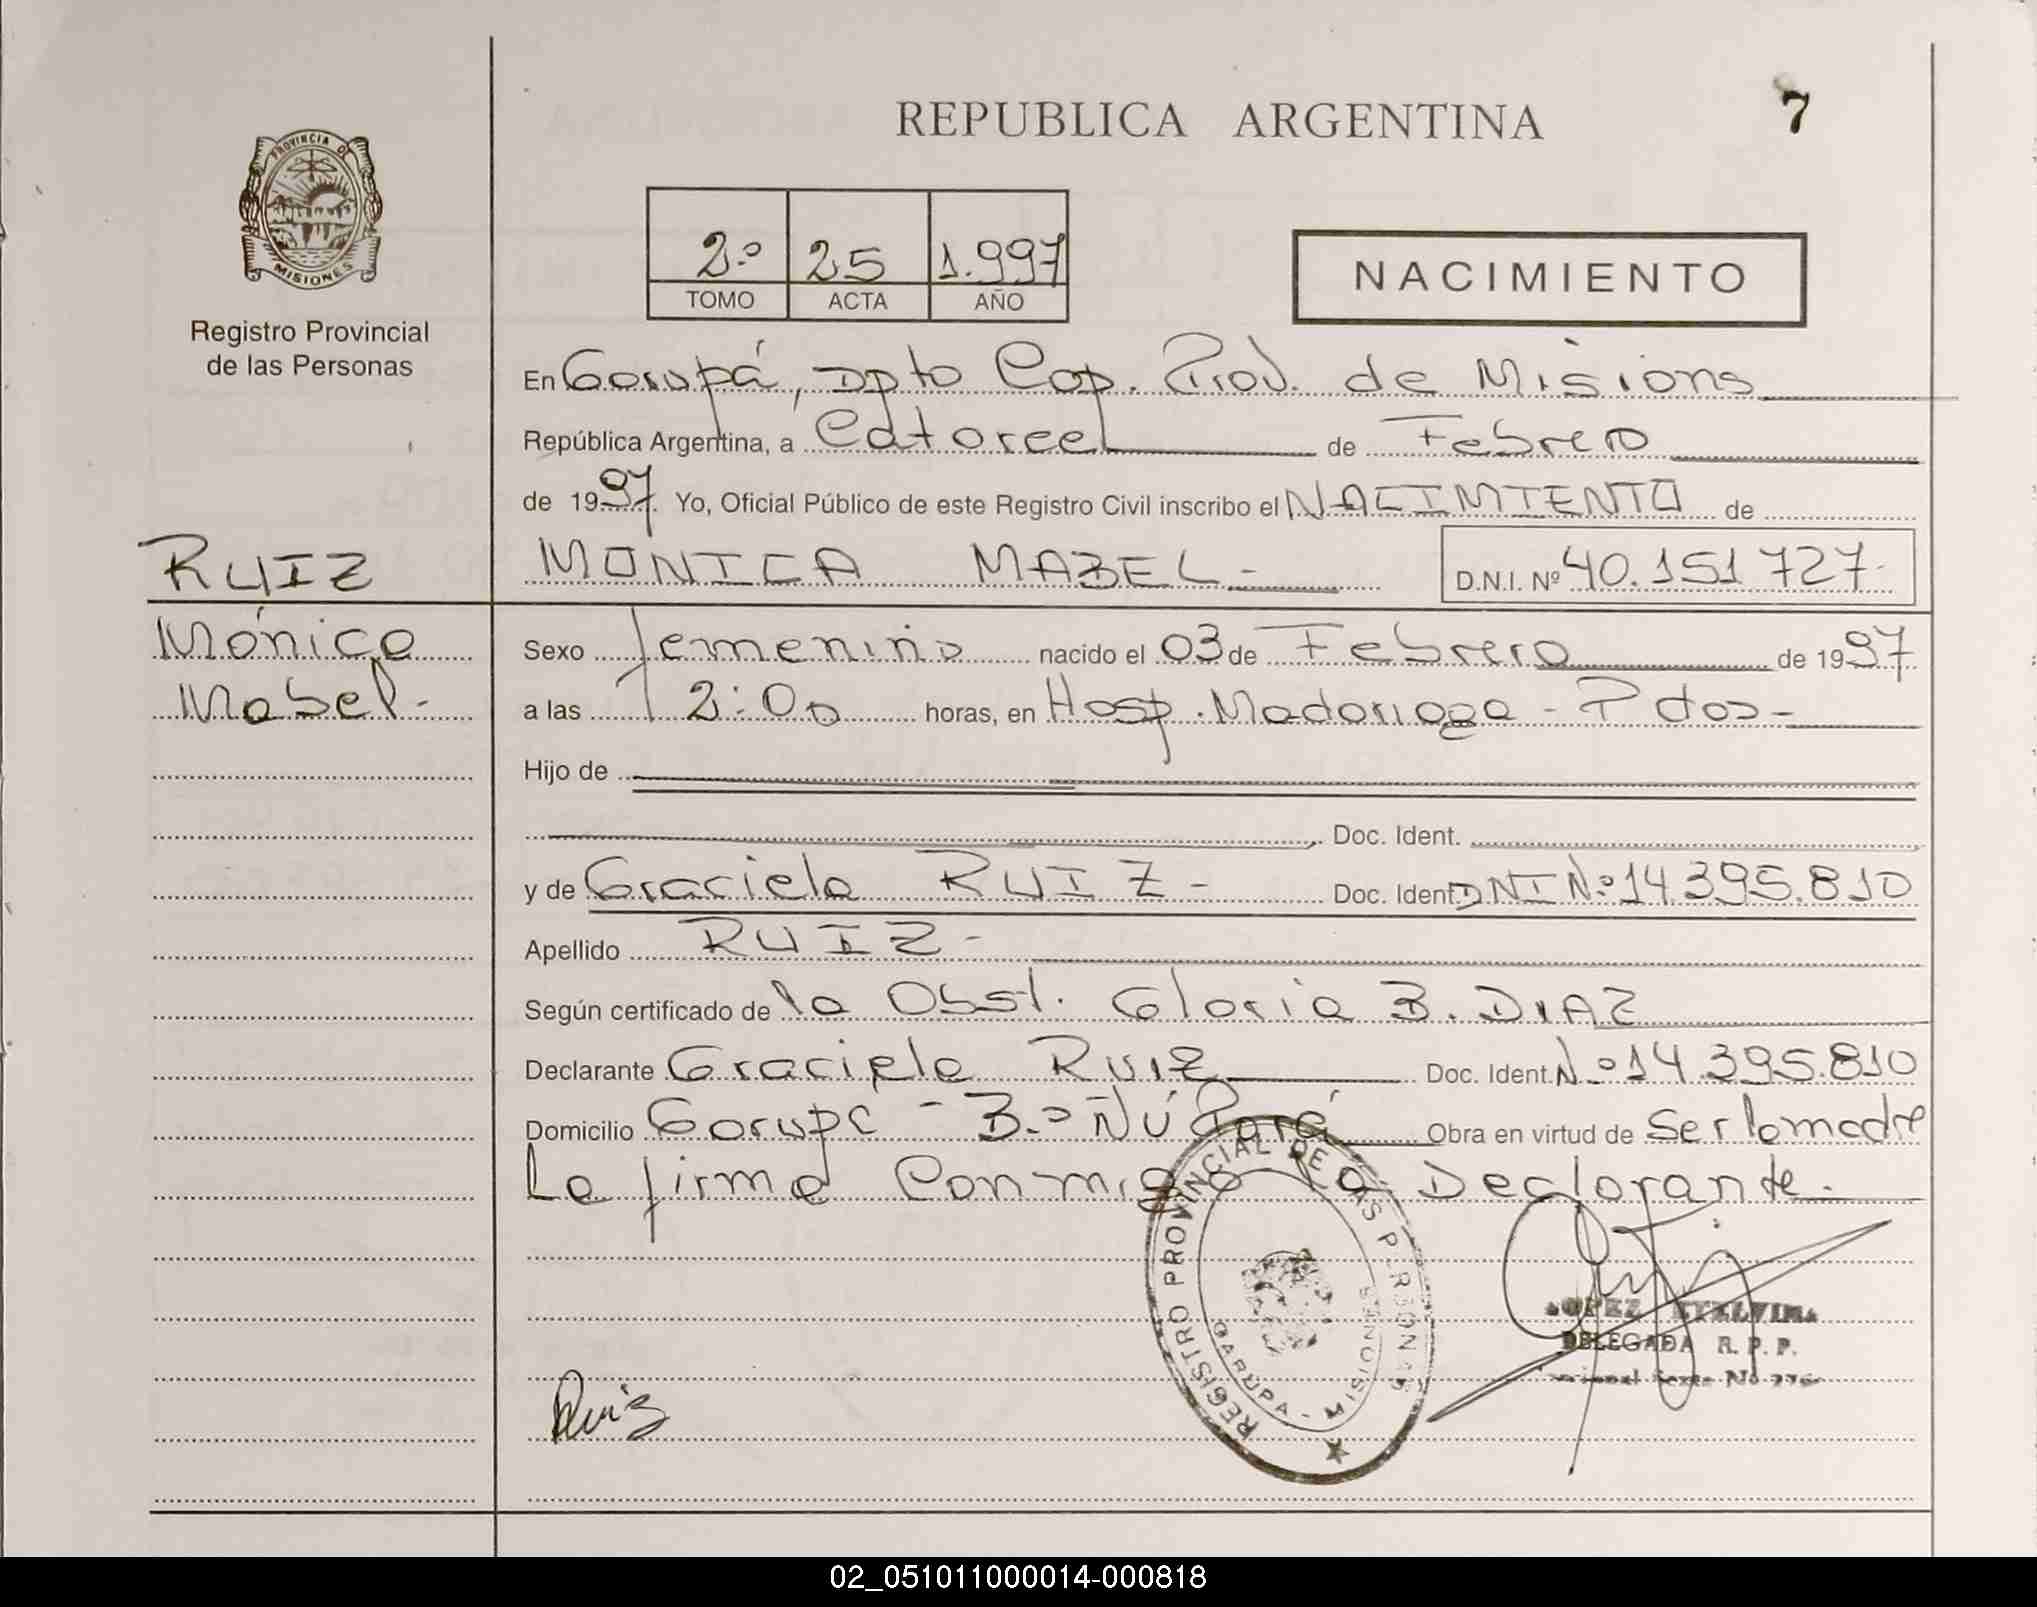 REPUBLICA ARGENTINA
7
PROVINCIA DE
MISIONES
Registro Provincial
de las Personas
2º 25 1.997
TOMO ACTA AÑO
NACIMIENTO
En Garupá, Dpto Cap. Prov. de Misions
República Argentina, a Catorce de Febrero
de 1997. Yo, Oficial Público de este Registro Civil inscribo el NACIMIENTO de
RUIZ
MONICA MABEL - D.N.I. Nº 40.151 727-
Mónica
Mabel.-
Sexo femenino nacido el 03 de Febrero de 1997
a las 12:00 horas, en Hosp. Madariaga - Pdas -
Hijo de
Doc. Ident.
y de Graciela RUIZ - Doc. Ident. DNI Nº 14.395.810
Apellido RUIZ -
Según certificado de la Obst. Gloria B. DIAZ
Declarante Graciela Ruiz Doc. Ident. Nº 14.395.810
Domicilio Garupá - Bº Ñú Porá Obra en virtud de Ser la madre
La firma Conmigo la Declarante.
REGISTRO PROVINCIAL DE LAS PERSONAS
GARUPA - MISIONES
LOPEZ ETELVINA
DELEGADA R. P. P.
Ruiz
02_051011000014-000818